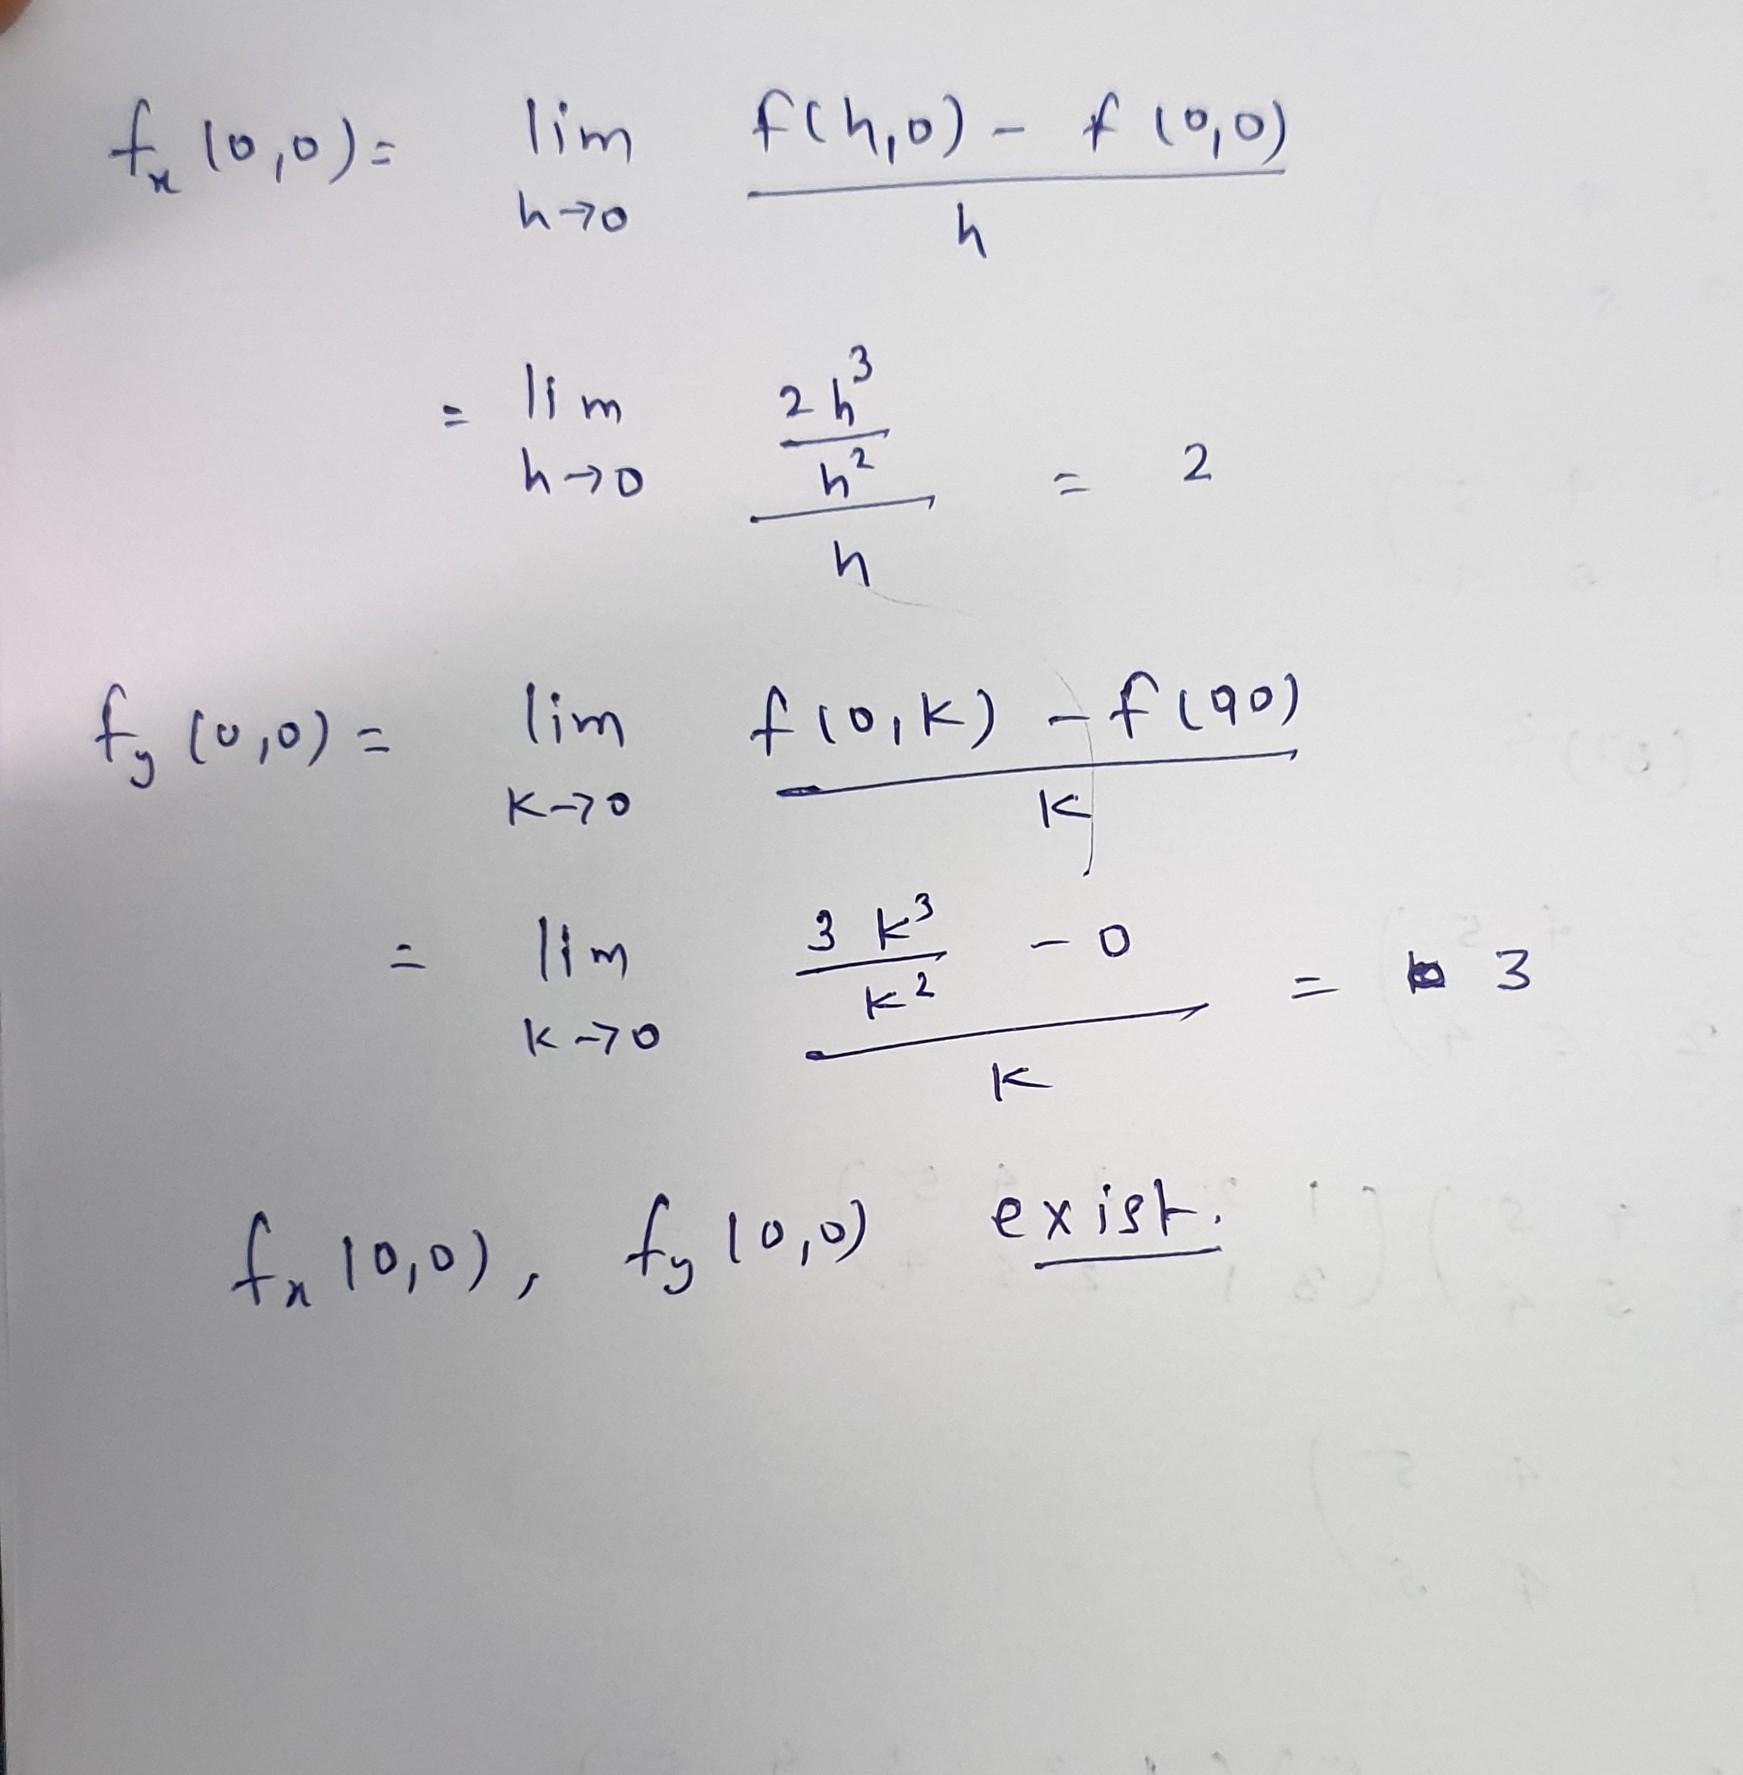 fx (0,0) = lim h→0 (f(h,0) - f(0,0)) / h
= lim h→0 (2h³/h²) / h = 2
fy (0,0) = lim k→0 (f(0,k) - f(0,0)) / k
= lim k→0 (3k³/k² - 0) / k = 3
fx (0,0), fy (0,0) exist.